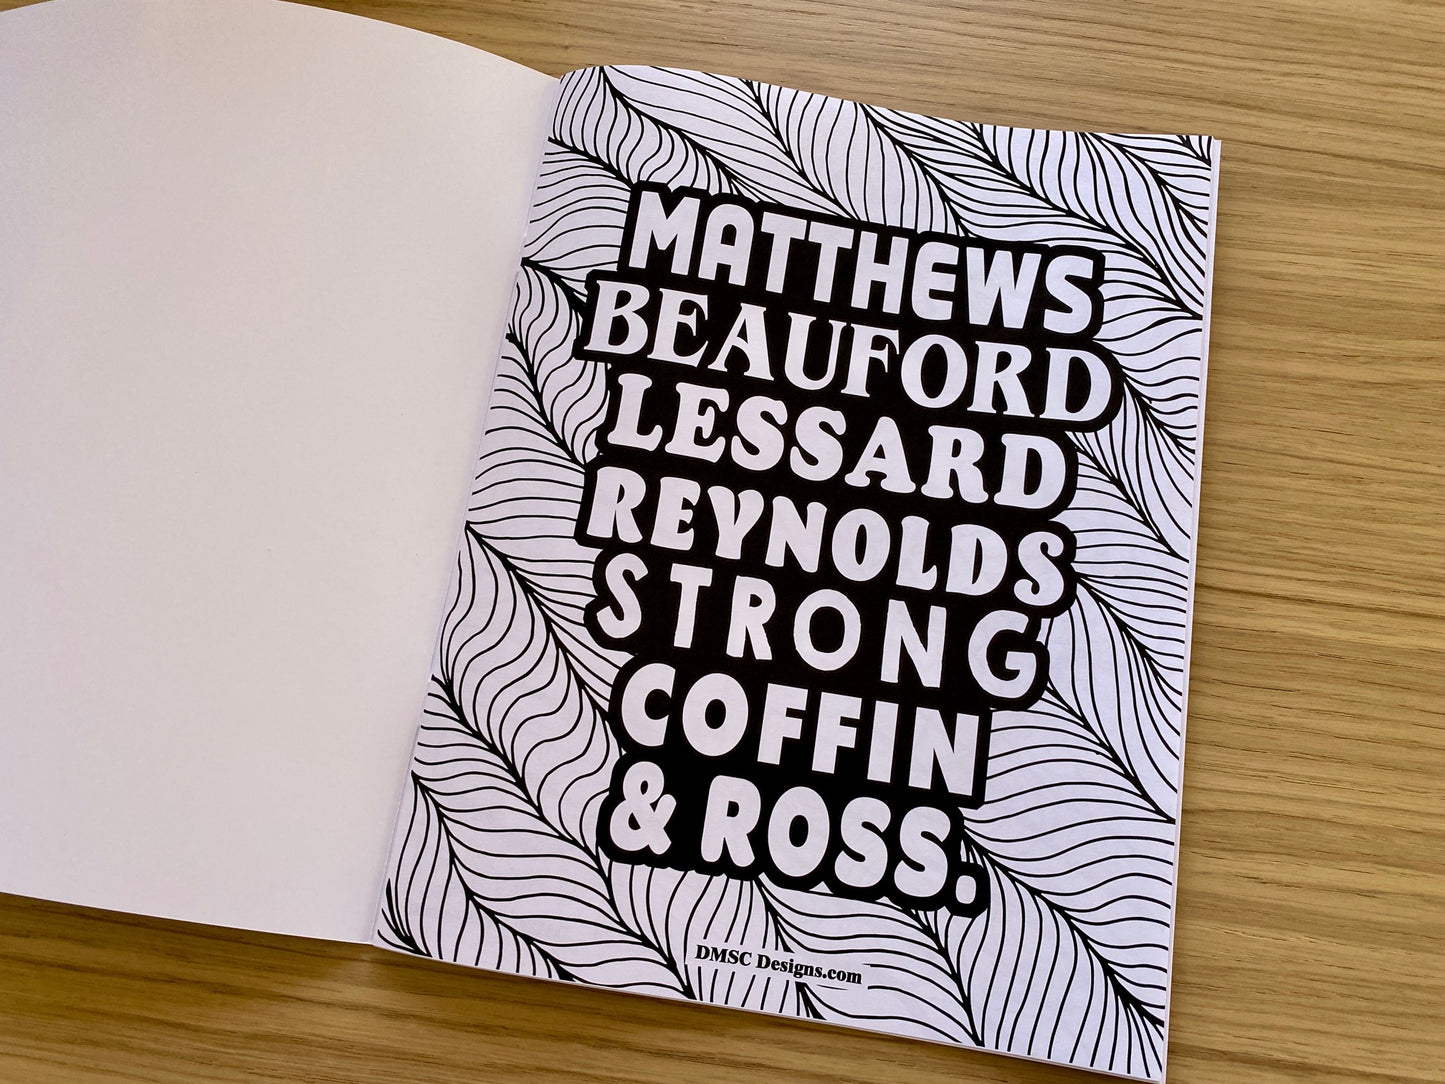 MATTHEWS
BEAUFORD
LESSARD
REYNOLDS
STRONG
COFFIN
& ROSS.
DMSC Designs.com